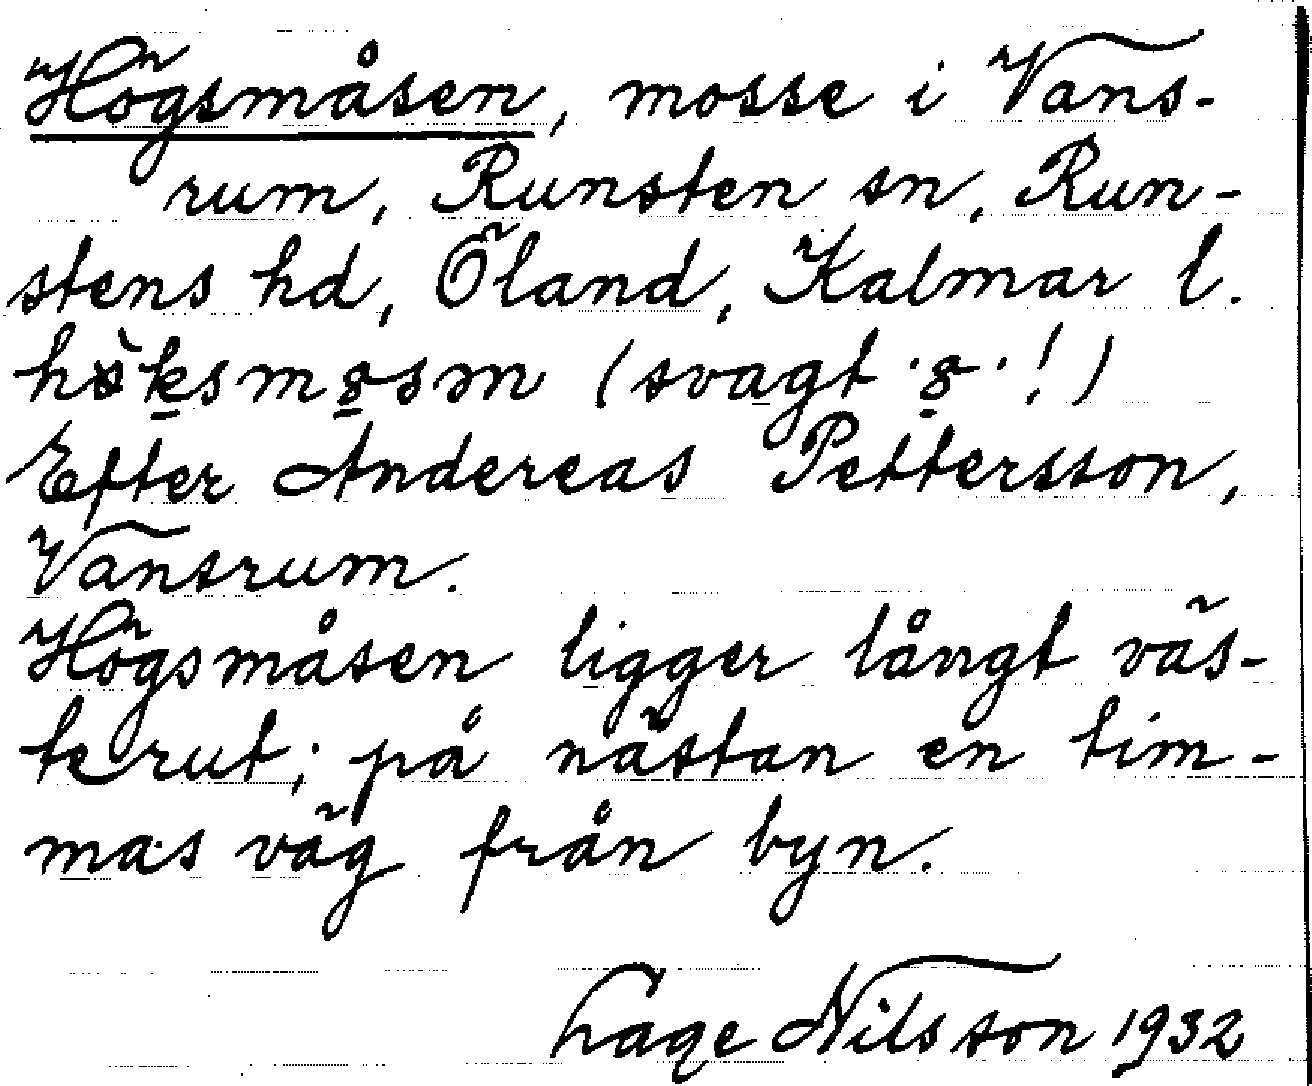 Högsmåsen, mosse i Vans-
rum, Runsten sn, Run-
stens hd, Öland, Kalmar l.
(svagt
Efter Andereas Pettersson,
Vansrum.
Högsmåsen ligger långt väs-
terut; på nästan en tim-
mas väg från byn.
Lage Nilsson 1932